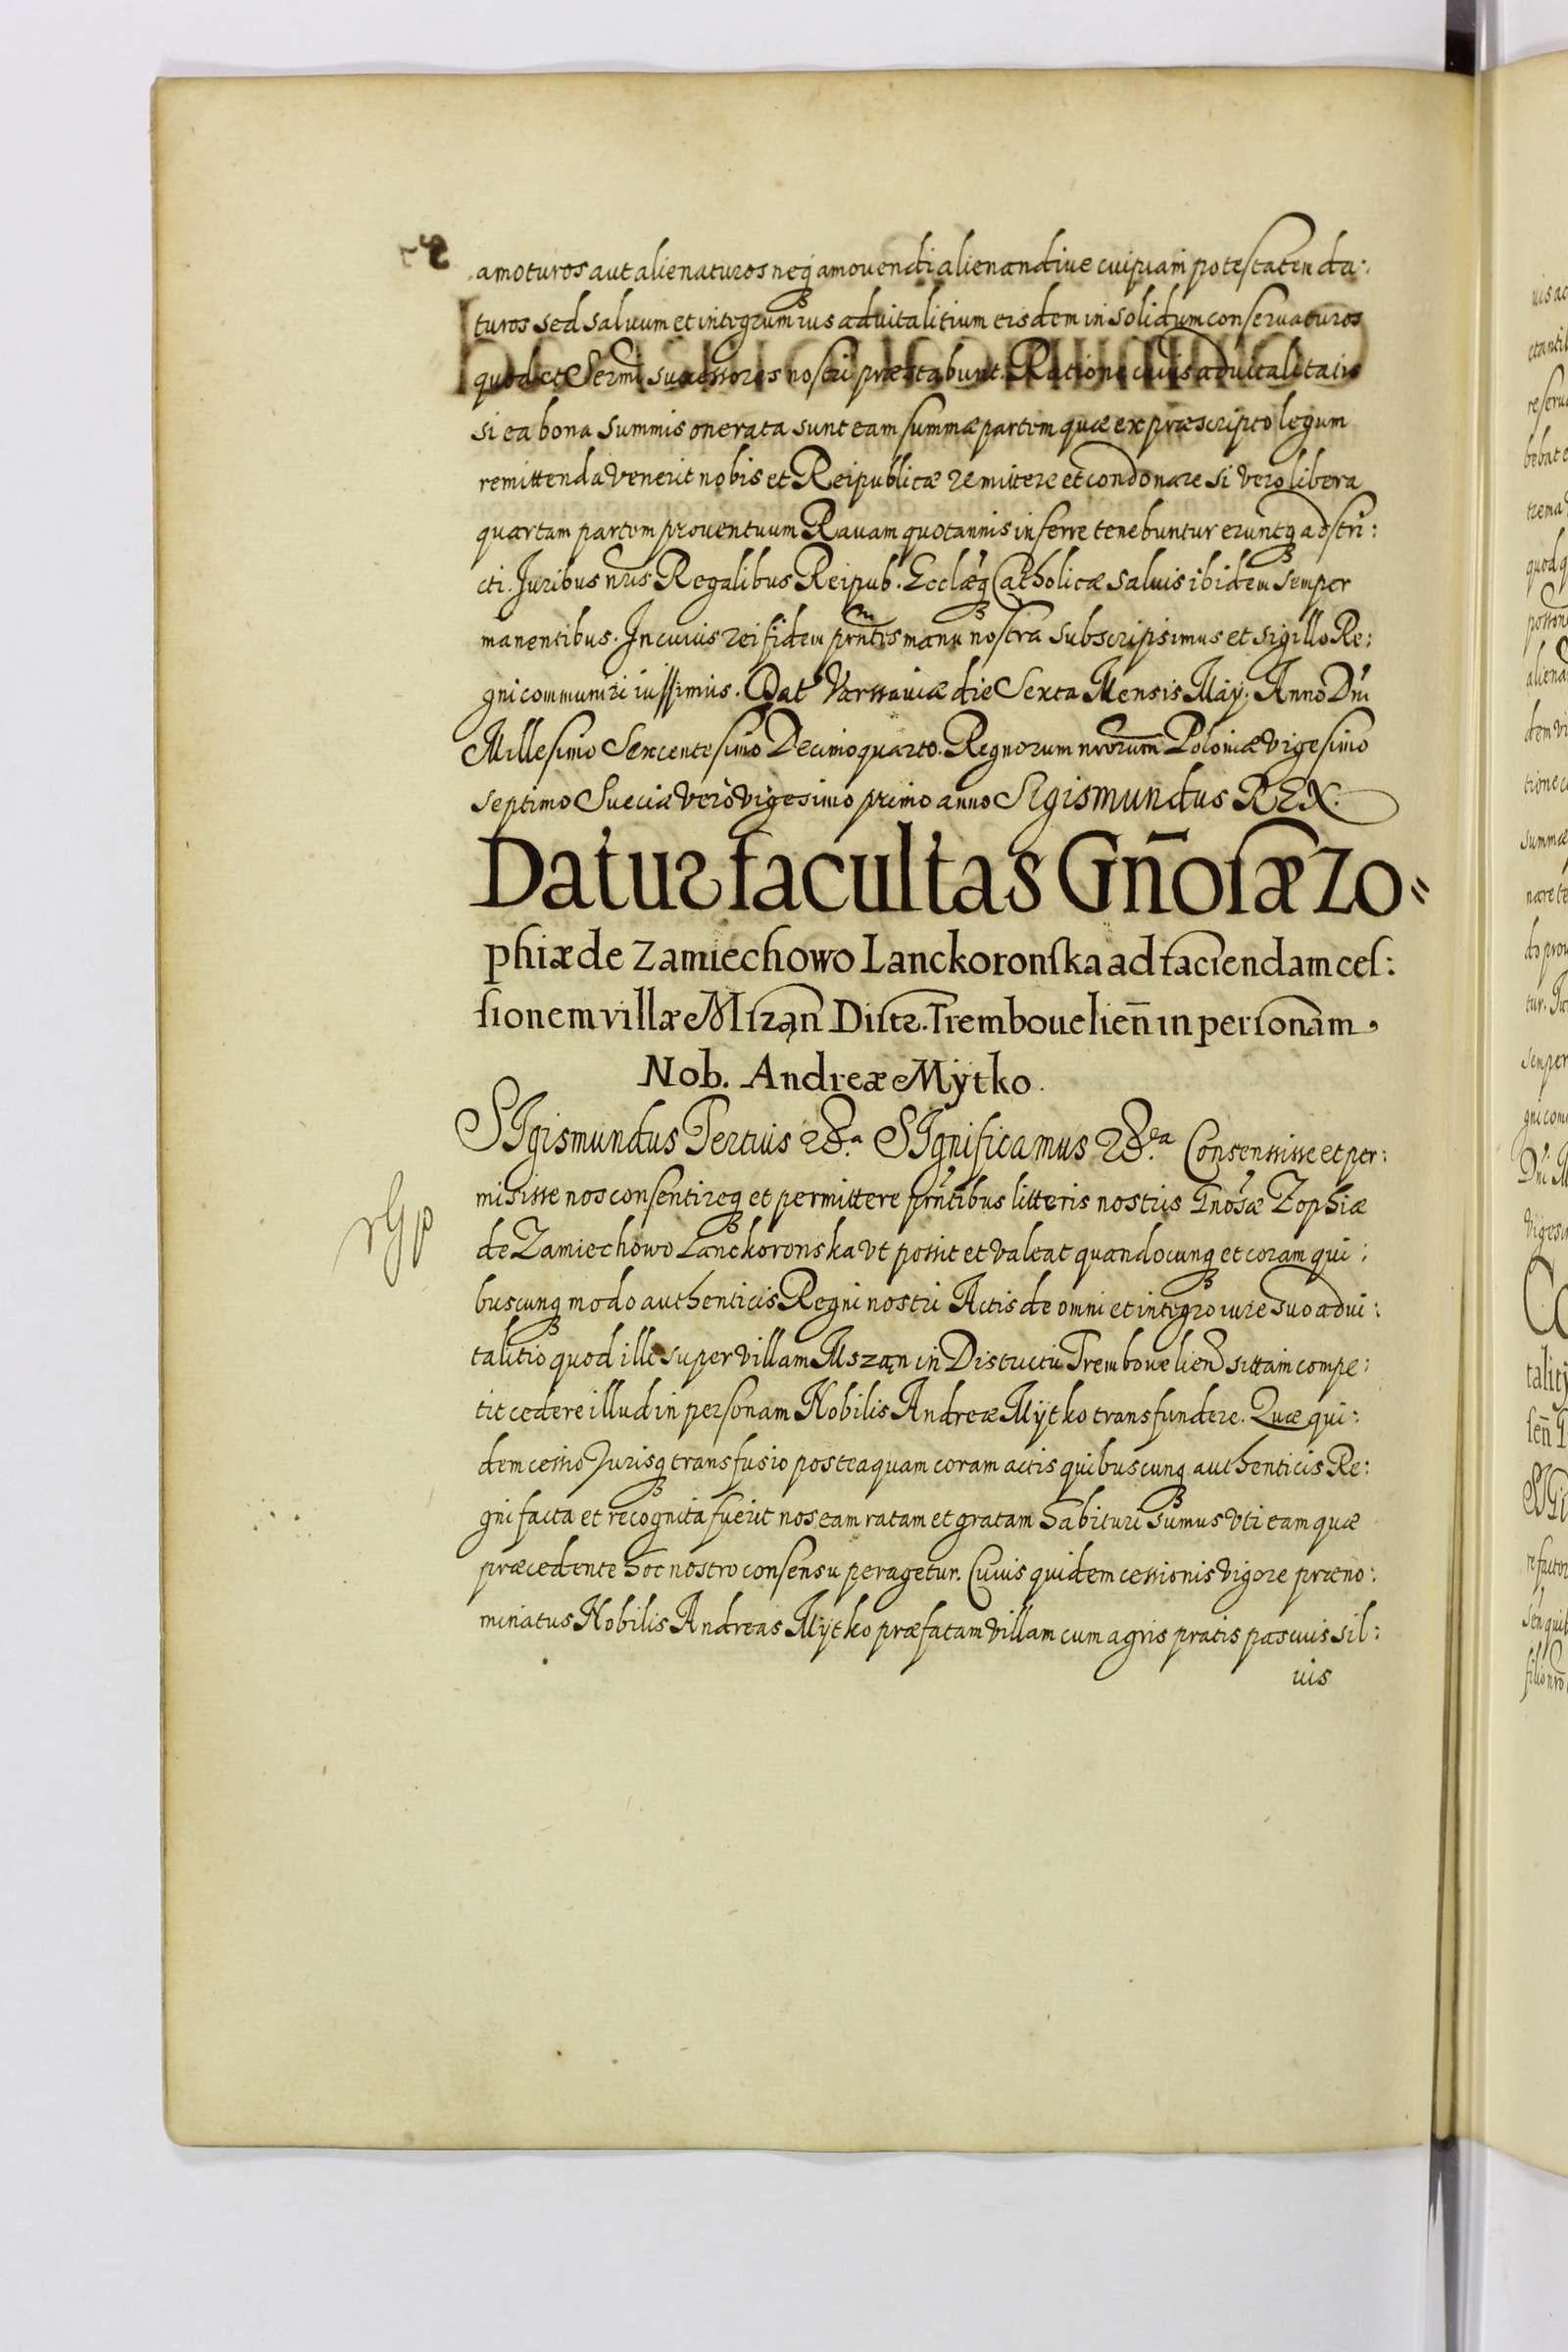 amoturos aut alienaturos neq₃ amovendi alienandive cuipiam potestatem da:
turos sed saluum et integrum ius aduitalitium eisdem in solidum conseruaturos
quod et Sermi successores nostri præstabunt. Ratione cuius aduitalitatis
si ea bona summis onerata sunt eam summæ partem quæ ex præscripto legum
remittenda venerit nobis et Reipublicæ remittere et condonare si vero libera
quartam partem prouentuum Rauam quotannis inferre tenebuntur eruntq₃ adstri:
cti. Juribus nris Regalibus Reipub. Ecclæq₃ Catholicæ saluis ibidem semper
manentibus. In cuius rei fidem prntes manu nostra subscripsimus et sigillo Re:
gni communiri iussimus. Dat Varssauiæ die Sexta Mensis Maÿ. Anno Dni
Millesimo Sexcentesimo Decimoquarto. Regnorum nrorum Poloniæ Vigesimo
septimo Sueciæ vero vigesimo primo anno Sigismundus REX.
Datur facultas Gñosæ Zo=
phiæ de Zamiechowo Lanckoronska ad faciendam ces:
sionem villæ Msząn Distr. Trembouelień in personam
Nob. Andreæ Mÿtko.
SIgismundus Tertius &.a SIgnificamus &.a Consensisse et per:
misisse nos consentireq₃ et permittere prntibus litteris nostris Gnosæ Zophiæ
rGp
de Zamiechowo Lanckoronska vt possit et valeat quandocunq₃ et coram qui:
buscunq₃ modo authenticis Regni nostri Actis de omni et integro iure suo adui:
talitio quod illi super villam Msząn in Districtu Trembouelien sittam compe:
tit cedere illud in personam Nobilis Andreæ Mÿtko transfundere. Quæ qui:
dem cessio Jurisq₃ transfusio posteaquam coram actis quibuscunq₃ authenticis Re:
gni facta et recognita fuerit nos eam ratam et gratam habituri sumus vti eam quæ
præcedente hoc nostro consensu peragetur. Cuius quidem cessionis vigore præno:
minatus Nobilis Andreas Mÿtko præfatam villam cum agris pratis pascuis sil:
uis